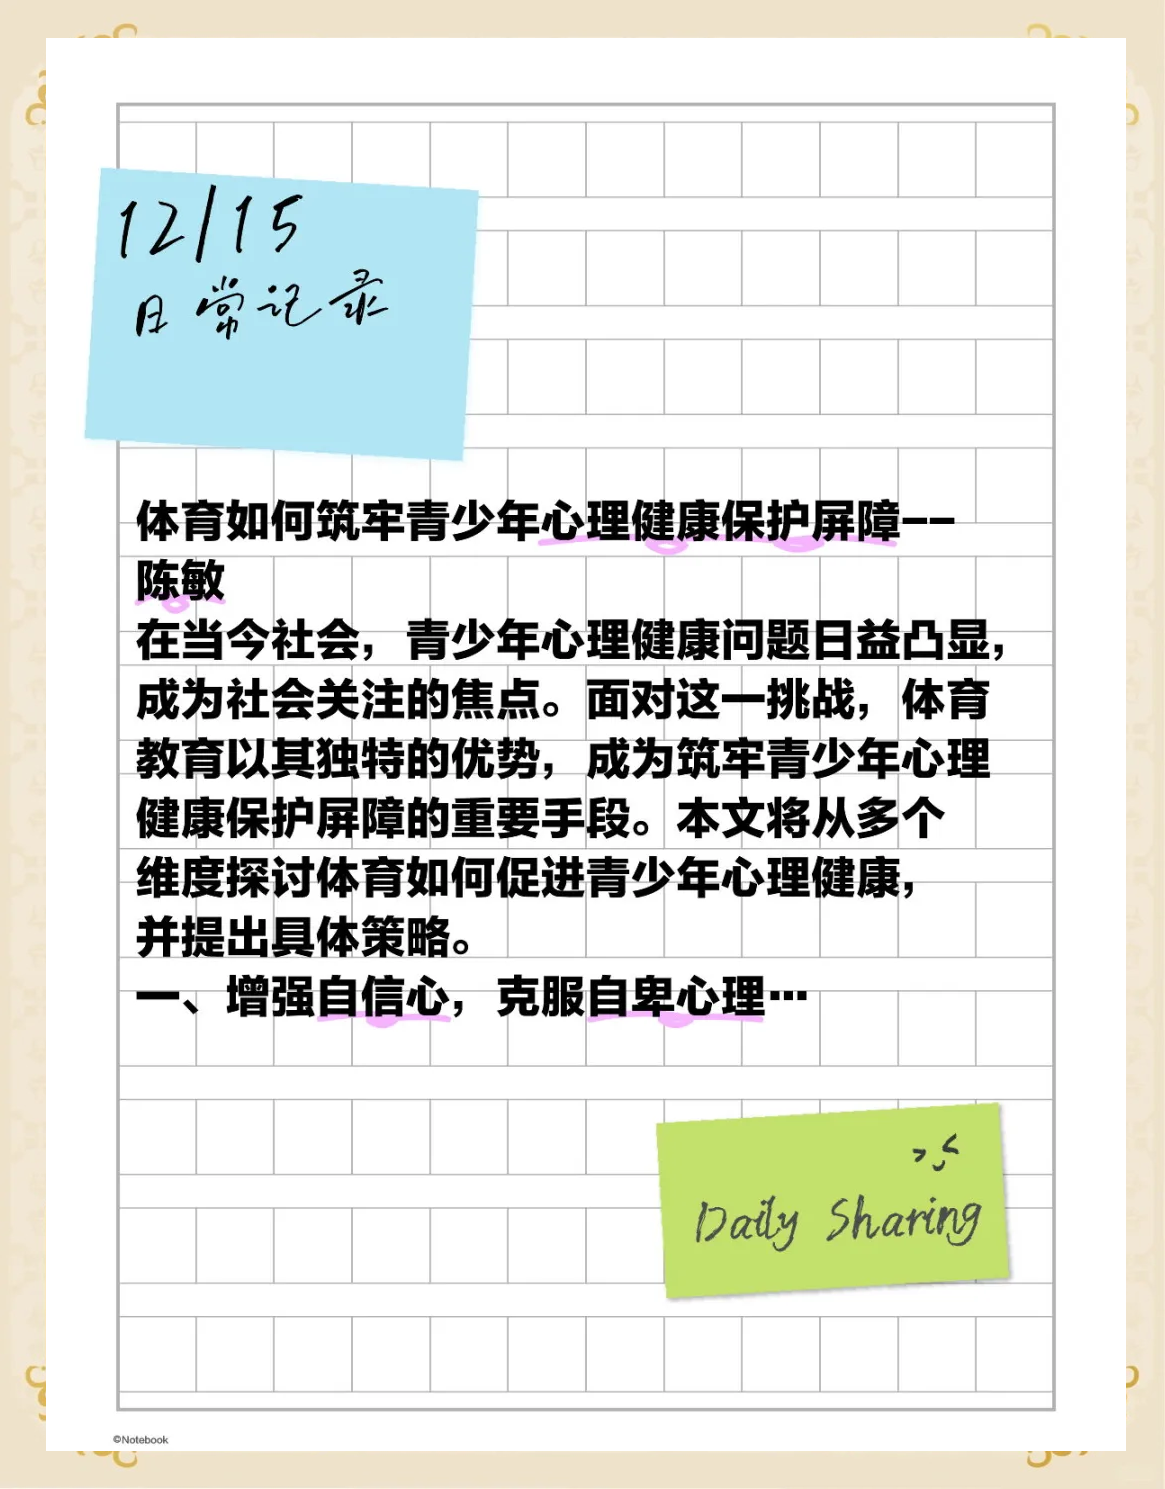 12/15
日常记录
体育如何筑牢青少年心理健康保护屏障--
陈敏
在当今社会，青少年心理健康问题日益凸显，
成为社会关注的焦点。面对这一挑战，体育
教育以其独特的优势，成为筑牢青少年心理
健康保护屏障的重要手段。本文将从多个
维度探讨体育如何促进青少年心理健康，
并提出具体策略。
一、增强自信心，克服自卑心理…
Daily Sharing
©Notebook